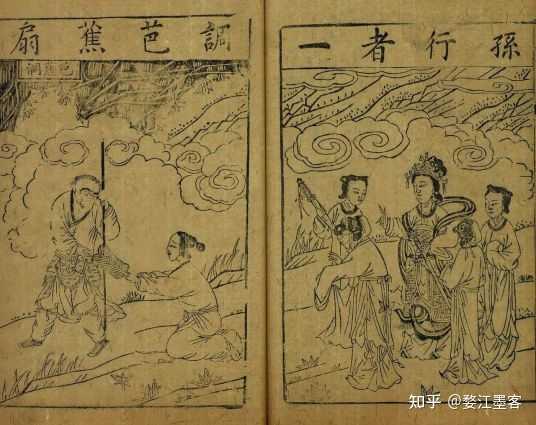 孫行者一
調芭蕉扇
芭蕉洞
知乎 @婺江墨客